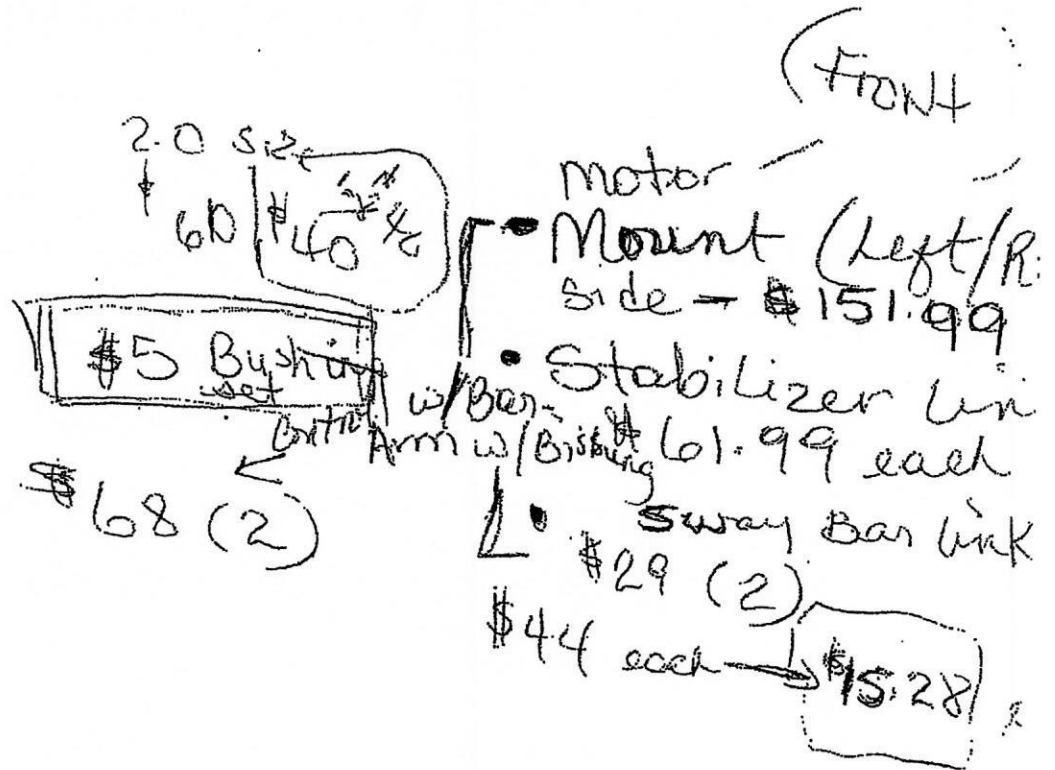 (Front
2.0 Size
60 $40
motor
• Mount (Left/R
side - $151.99
$5 Bushing
set
• Stabilizer Lin
w/Bar
Arm w/Bushing
$61.99 each
$68 (2)
• Sway Bar Link
$29 (2)
$44 each
$15.28